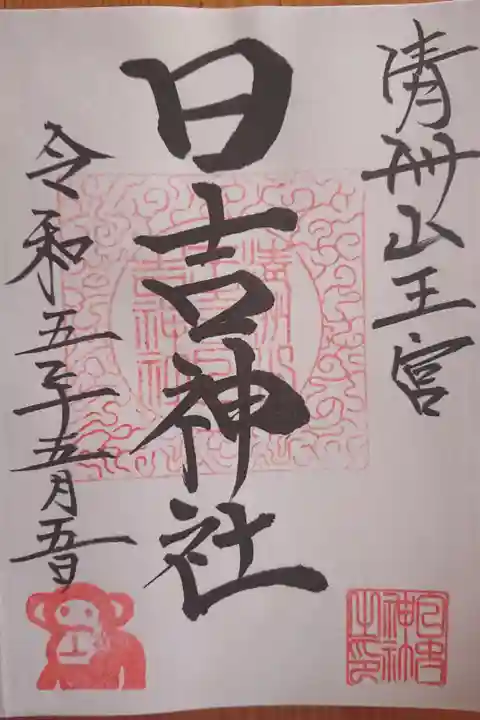 清洲山王宮
日吉神社
令和五年五月五日
日吉神社之印